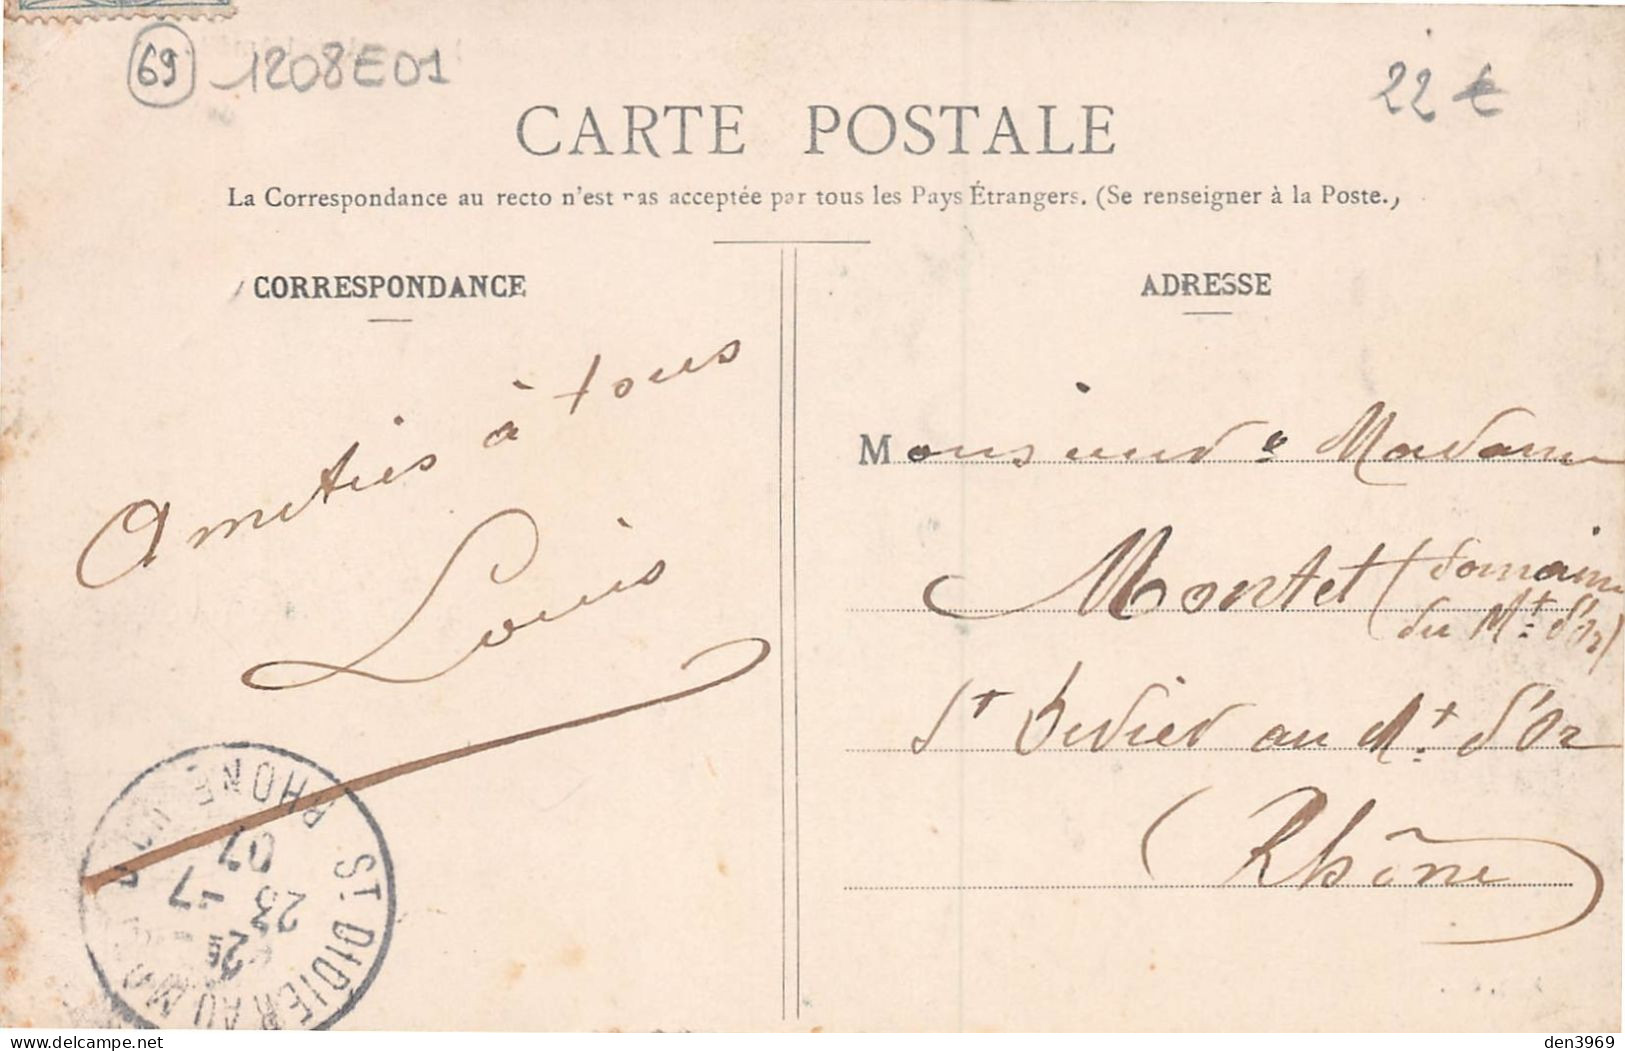 69 1208E01
22 €
CARTE POSTALE
La Correspondance au recto n'est pas acceptée par tous les Pays Étrangers. (Se renseigner à la Poste.)
CORRESPONDANCE
Amitiés à tous
Louis
ADRESSE
Monsieur & Madame
Montet (domaine
du Mt d'Or)
St Didier au Mt d'Or
(Rhône)
ST DIDIER AU MONT D'OR
RHONE
23 -7
07
delcampe.net
den3969